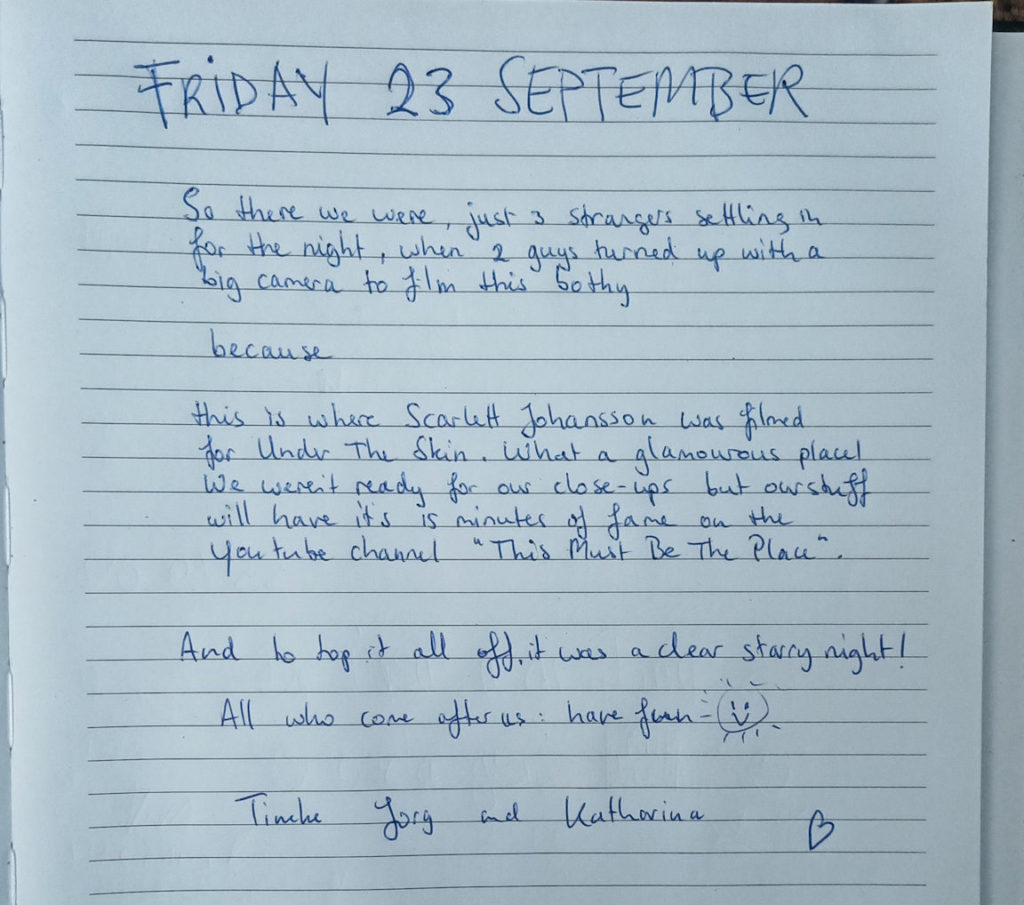 FRIDAY 23 SEPTEMBER
So there we were, just 3 strangers settling in
for the night, when 2 guys turned up with a
big camera to film this bothy
because
this is where Scarlett Johansson was filmed
for Under The Skin. What a glamourous place!
We weren't ready for our close-ups but our stuff
will have it's 15 minutes of fame on the
Youtube channel "This Must Be The Place".
And to top it all off, it was a clear starry night!
All who come after us: have fun
Jorg and Katharina